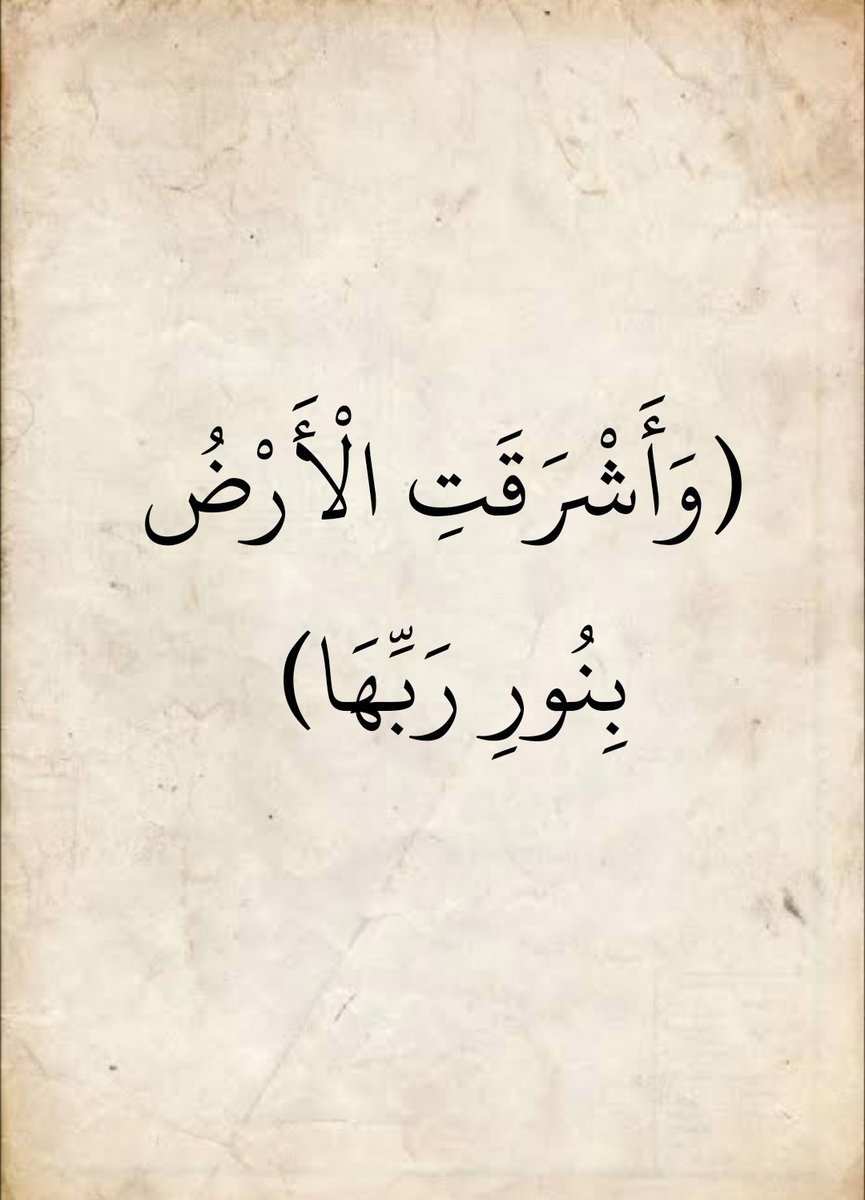 (وَأَشْرَقَتِ الْأَرْضُ
بِنُورِ رَبِّهَا)